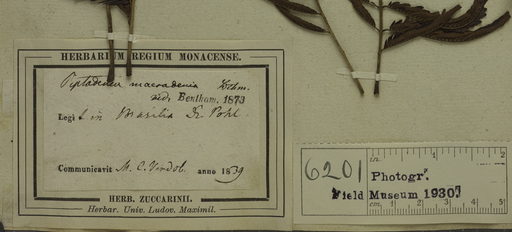 HERBARIUM REGIUM MONACENSE.
Piptadenia macradenia Bthm.
vid. Bentham. 1873
Legit in Brasilia Dr. Pohl
Communicavit M. C. Vindob. anno 1839
HERB. ZUCCARINII.
Herbar. Univ. Ludov. Maximil.
6201
in. 1 2
Photogr.
Field Museum 1930
cm. 1 2 3 4 5